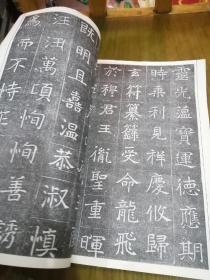 靈光溫寶運德應期
時乘利見祥慶攸歸
玄符纂籙受命龍飛
於穆君王胤聖重暉
既明且嚞溫恭淑慎
汪汪萬頃恂恂善誘
為而不恃